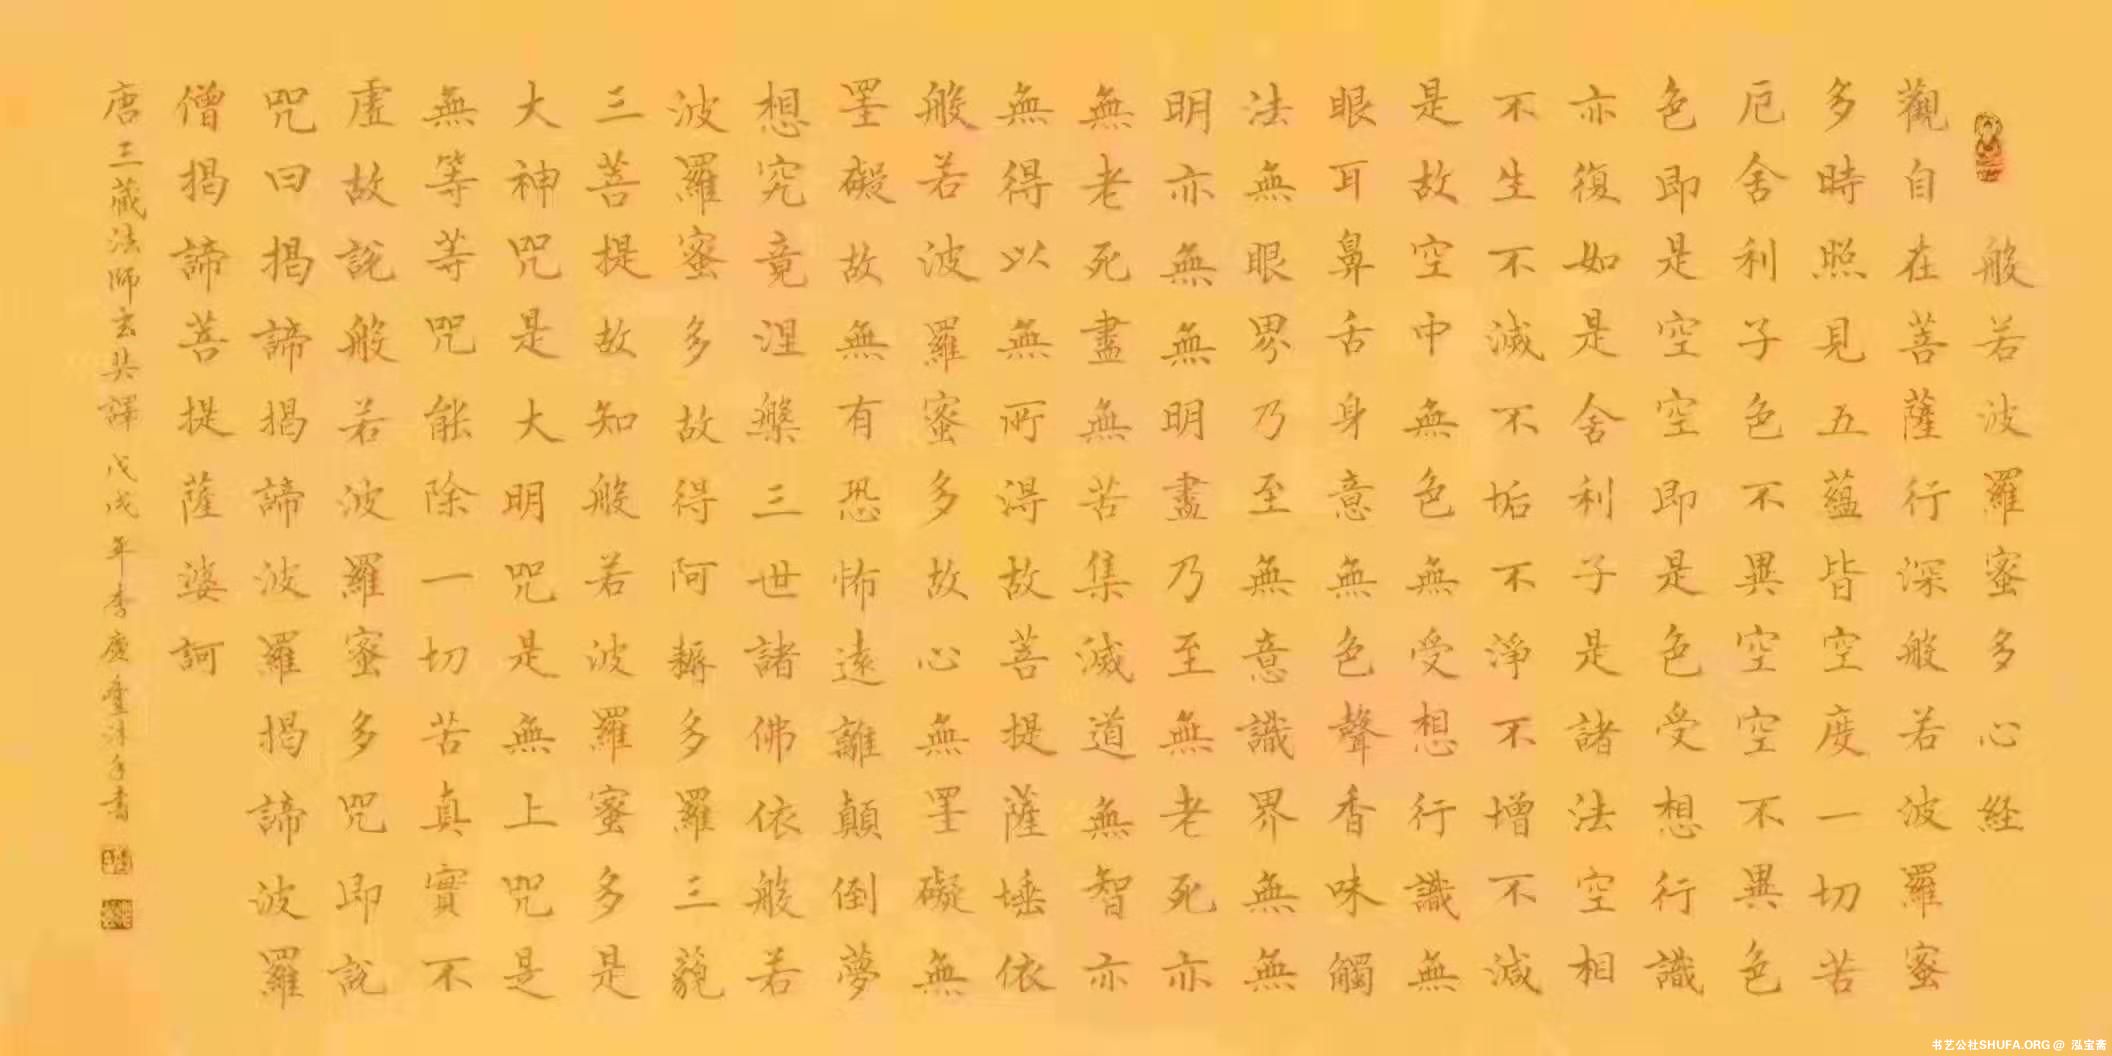 般若波羅蜜多心経
觀自在菩薩行深般若波羅蜜
多時照見五蘊皆空度一切苦
厄舍利子色不異空空不異色
色即是空空即是色受想行識
亦復如是舍利子是諸法空相
不生不滅不垢不淨不增不減
是故空中無色無受想行識無
眼耳鼻舌身意無色聲香味觸
法無眼界乃至無意識界無無
明亦無無明盡乃至無老死亦
無老死盡無苦集滅道無智亦
無得以無所得故菩提薩埵依
般若波羅蜜多故心無罣礙無
罣礙故無有恐怖遠離顛倒夢
想究竟涅槃三世諸佛依般若
波羅蜜多故得阿耨多羅三藐
三菩提故知般若波羅蜜多是
大神咒是大明咒是無上咒是
無等等咒能除一切苦真實不
虛故說般若波羅蜜多咒即說
咒曰揭諦揭諦波羅揭諦波羅
僧揭諦菩提薩婆訶
唐三藏法師玄奘譯戊戌年李慶沐手書
书艺公社SHUFA.ORG @ 泓宝斋